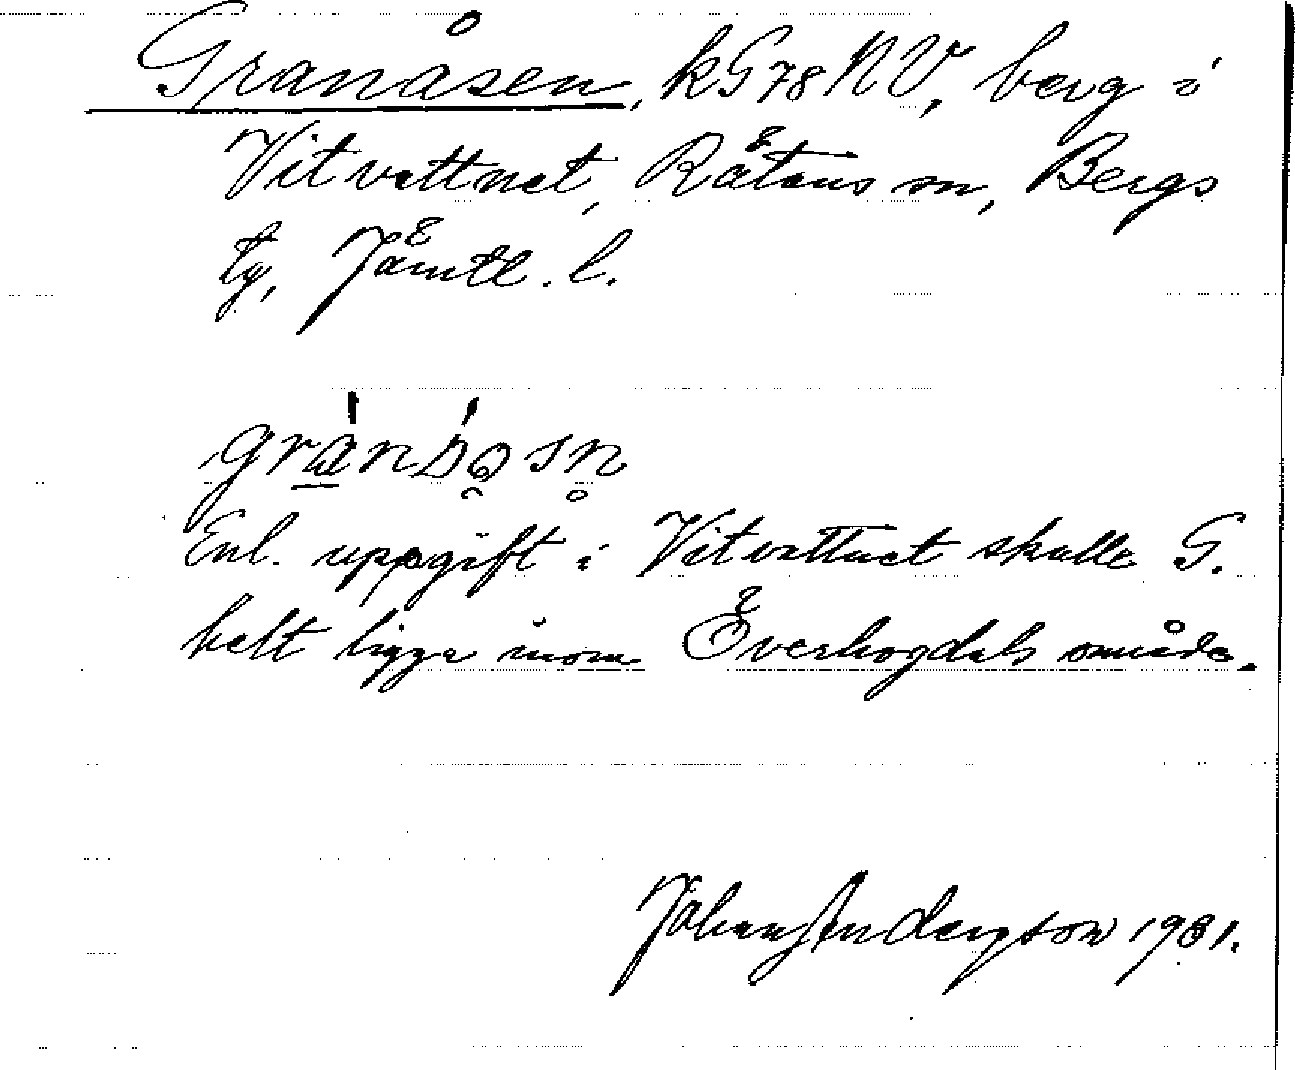 Granåsen, kG78NV, berg i
Vitvattnet, Rätans sn, Bergs
tg, Jämtl. l.
Enl. uppgift i Vitvattnet skulle G.
helt ligga inom Överhogdals område.
Johan Anderzson 1931.